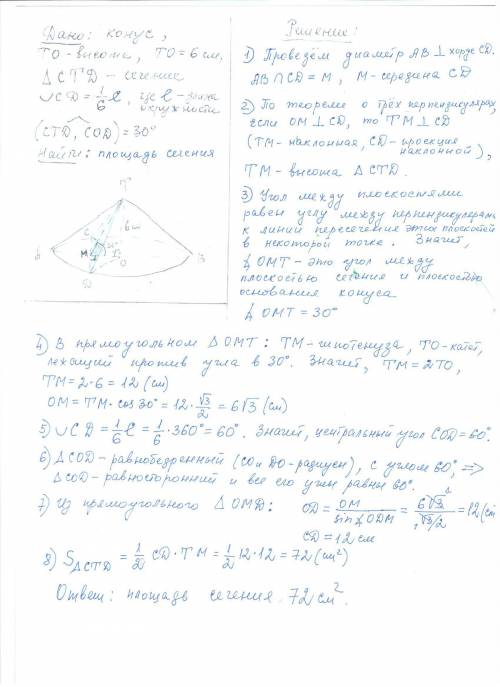 Дано: конус,
TO - высота, TO = 6 см,
△CTD - сечение
∪CD = 1/6 ℓ, где ℓ - длина окружности
(CTD, COD) = 30°
Найти: площадь сечения
T
6 см
C
A
M
30°
O
B
D
Решение:
1) Проведём диаметр AB ⊥ хорде CD.
AB ∩ CD = M, M - середина CD
2) По теореме о трёх перпендикулярах,
если OM ⊥ CD, то TM ⊥ CD
(TM - наклонная, CD - проекция
наклонной),
TM - высота △CTD.
3) Угол между плоскостями
равен углу между перпендикулярами
к линии пересечения этих плоскостей
в некоторой точке. Значит,
∡OMT - это угол между
плоскостью сечения и плоскостью
основания конуса
∡OMT = 30°
4) В прямоугольном △OMT: TM - гипотенуза, TO - катет,
лежащий против угла в 30°. Значит, TM = 2TO,
TM = 2·6 = 12 (см)
OM = TM · cos 30° = 12 · √3/2 = 6√3 (см)
5) ∪CD = 1/6 ℓ = 1/6 · 360° = 60°. Значит, центральный угол COD = 60°.
6) △COD - равнобедренный (CO и DO - радиусы), с углом 60°, =>
△COD - равносторонний и все его углы равны 60°.
7) Из прямоугольного △OMD: OD = OM / sin∡ODM = 6√3 / √3/2 = 12 (см)
CD = 12 см
8) S△CTD = 1/2 CD · TM = 1/2 12 · 12 = 72 (см²)
Ответ: площадь сечения 72 см².